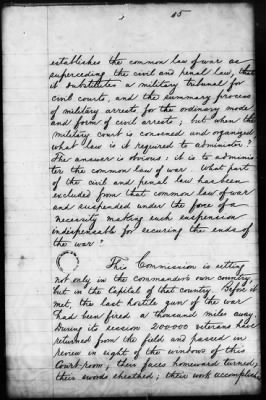 15
establishes the common law of war as
superceding the civil and penal law, that
it substitutes a military tribunal for
civil courts, and the summary process
of military arrests for the ordinary mode
and form of civil arrests; but when the
military court is convened and organized
what law is it required to administer?
The answer is obvious: it is to adminis-
ter the common law of war. What part
of the civil and penal law has been
excluded from that common law of war
and suspended under the force of a
necessity making such suspension
indispensable for securing the ends of
the war?
This Commission is sitting
not only in the commander's own country
but in the Capital of that country. Before it
met, the last hostile gun of the war
had been fired a thousand miles away.
During its session 200.000 veterans have
returned from the field and passed in
review in sight of the windows of this
court-room; their faces homeward turned;
their swords sheathed; their work accomplish